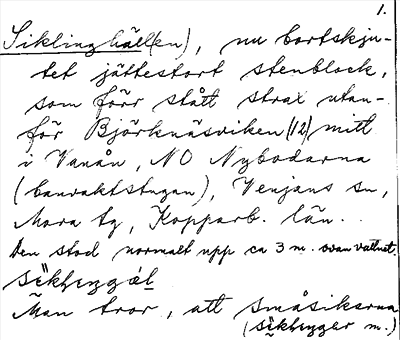 1.
Siklinghäll(en), nu bortskju-
tet jättestort stenblock,
som förr stått strax utan-
för Björknäsviken (12) mitt
i Vanån, NO Nybodarna
(banvaktstugan), Venjans sn,
Mora tg, Kopparb. län.
Den stod normalt upp ca 3 m. ovan vattnet.
Man tror, att småsikarna